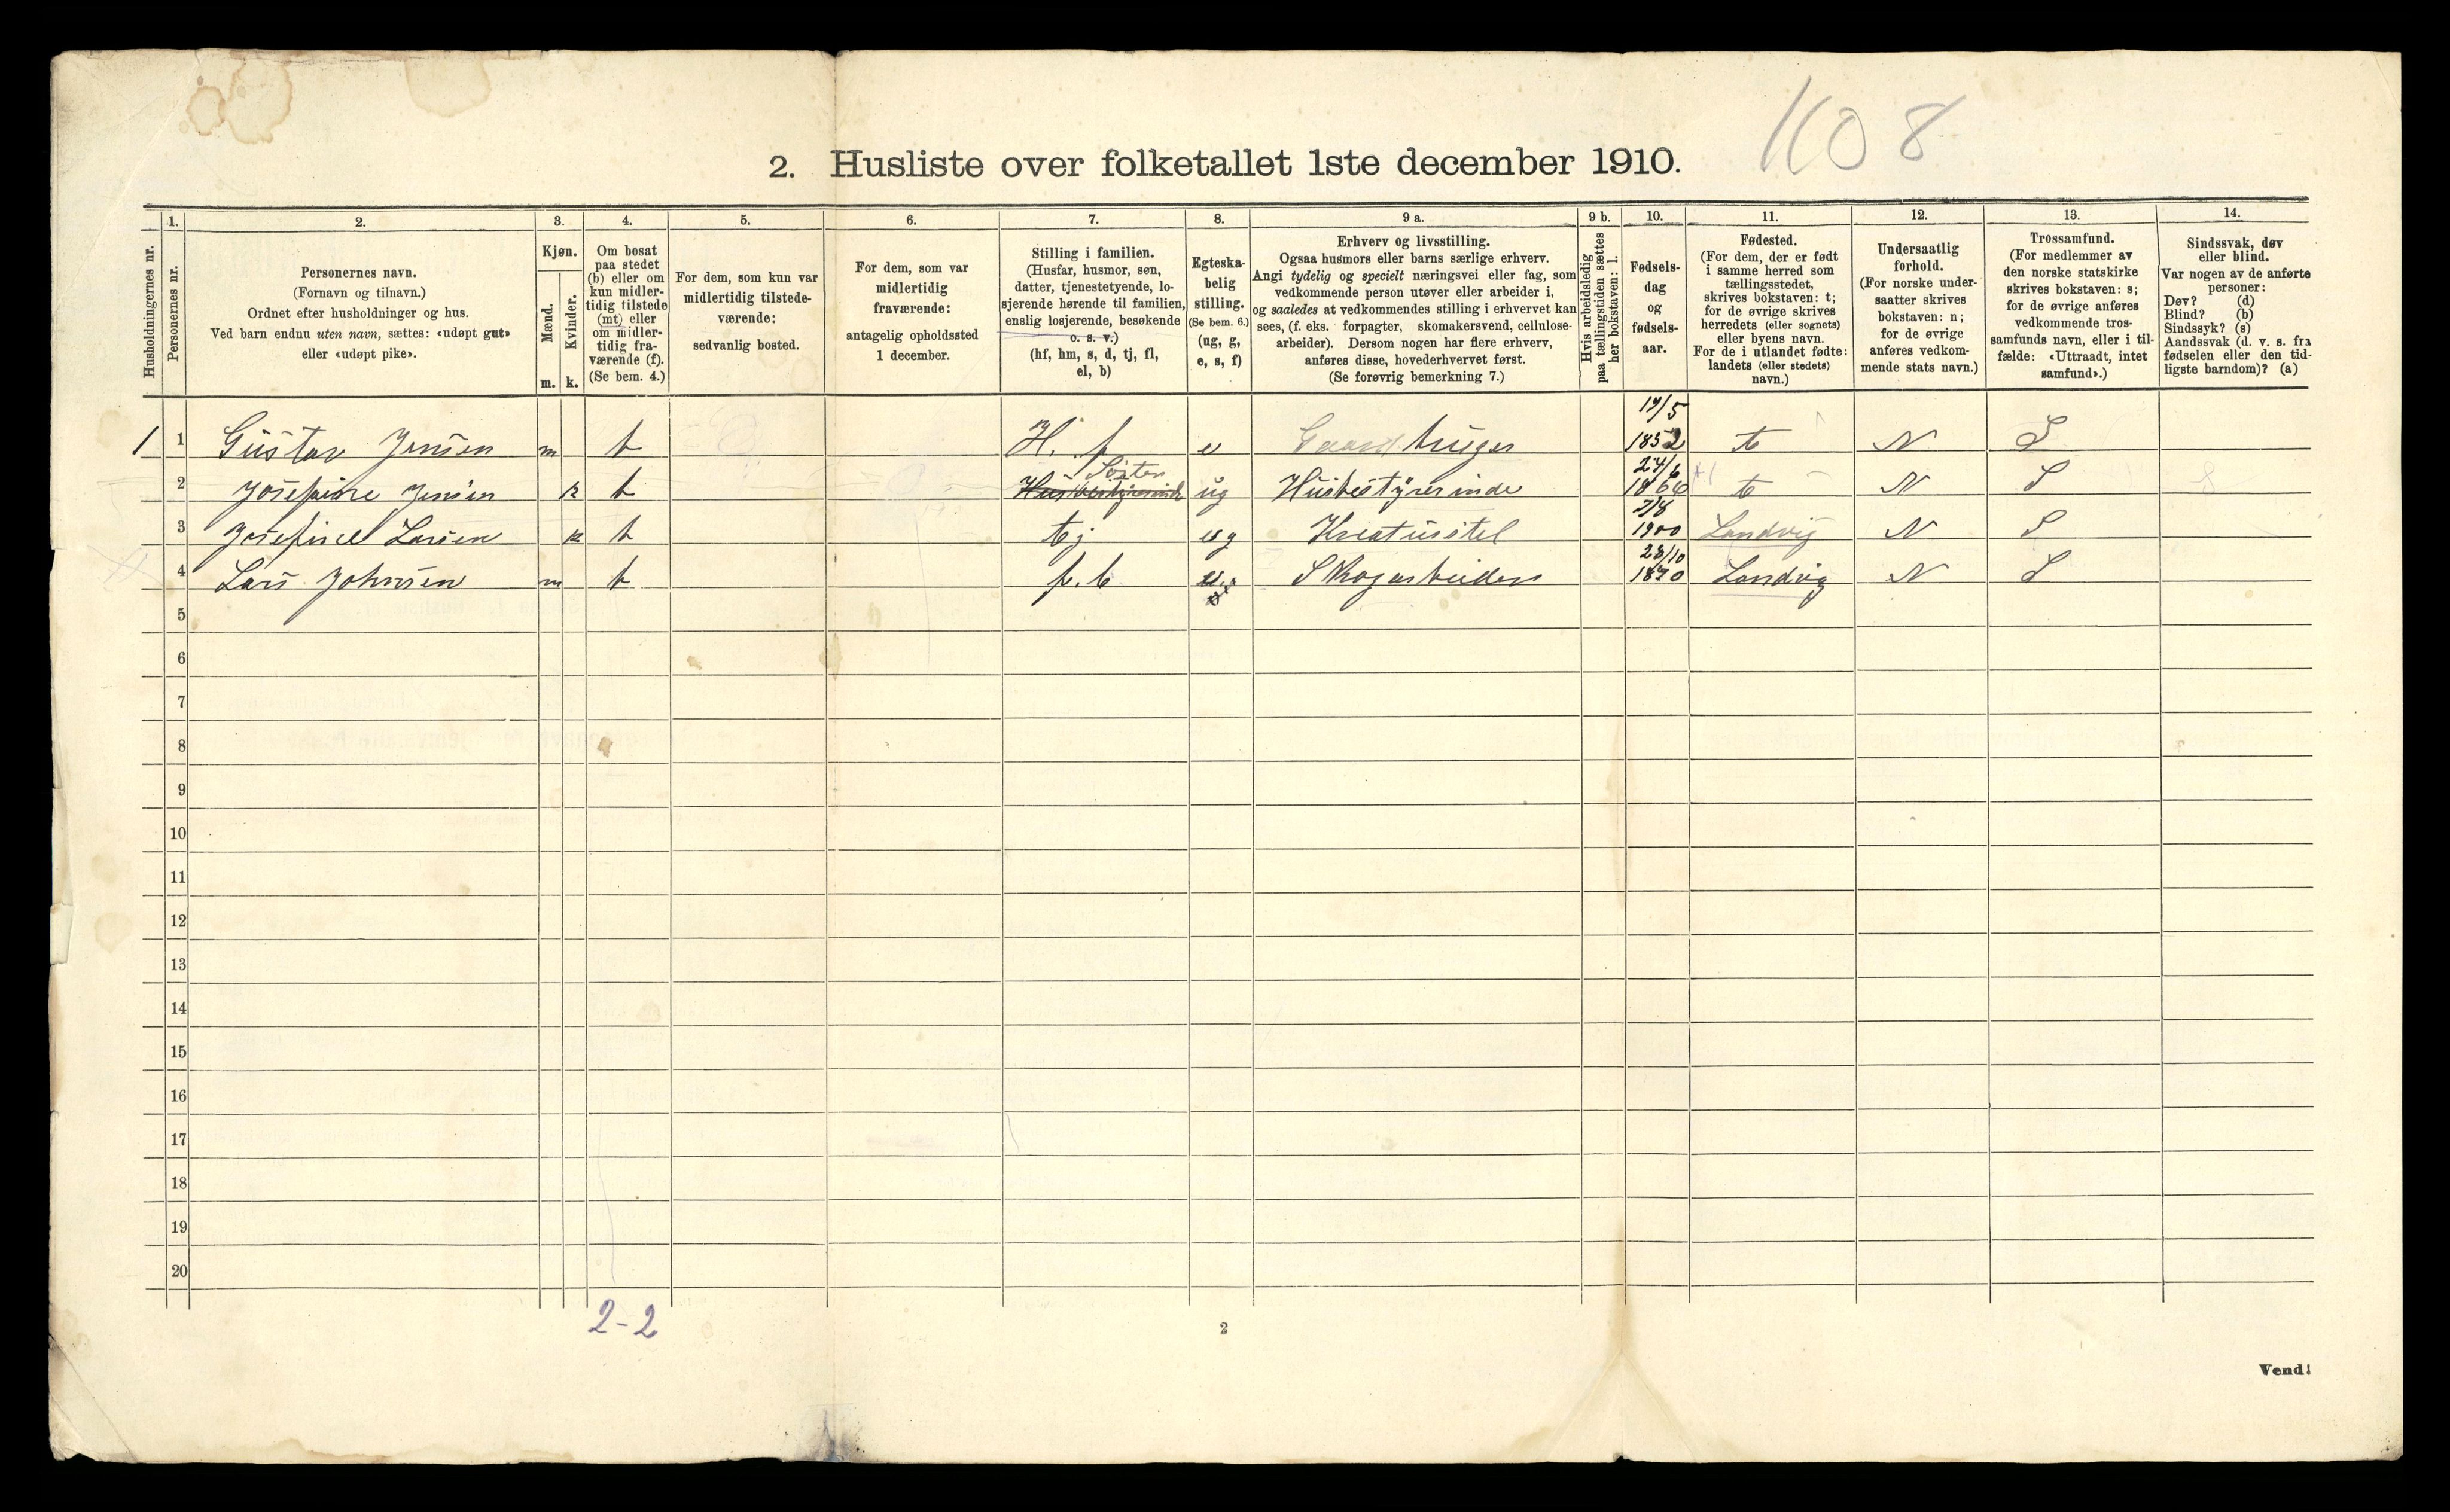 1108
2. Husliste over folketallet 1ste december 1910.
Husholdningernes nr.
1.
Personernes nr.
2.
Personernes navn.
(Fornavn og tilnavn.)
Ordnet efter husholdninger og hus.
Ved barn endnu uten navn, sættes: «udøpt gut»
eller «udøpt pike».
3.
Kjøn.
Mænd.
Kvinder.
m. k.
4.
Om bosat
paa stedet
(b) eller om
kun midler-
tidig tilstede
(mt) eller
om midler-
tidig fra-
værende (f).
(Se bem. 4.)
5.
For dem, som kun var
midlertidig tilstede-
værende:
sedvanlig bosted.
6.
For dem, som var
midlertidig
fraværende:
antagelig opholdssted
1 december.
7.
Stilling i familien.
(Husfar, husmor, søn,
datter, tjenestetyende, lo-
sjerende hørende til familien,
enslig losjerende, besøkende
o. s. v.)
(hf, hm, s, d, tj, fl,
el, b)
8.
Egteska-
belig
stilling.
(Se bem. 6.)
(ug, g,
e, s, f)
9 a.
Erhverv og livsstilling.
Ogsaa husmors eller barns særlige erhverv.
Angi tydelig og specielt næringsvei eller fag, som
vedkommende person utøver eller arbeider i,
og saaledes at vedkommendes stilling i erhvervet kan
sees, (f. eks. forpagter, skomakersvend, cellulose-
arbeider). Dersom nogen har flere erhverv,
anføres disse, hovederhvervet først.
(Se forøvrig bemerkning 7.)
9 b.
Hvis arbeidsledig
paa tællingstiden sættes
her bokstaven: l.
10.
Fødsels-
dag
og
fødsels-
aar.
11.
Fødested.
(For dem, der er født
i samme herred som
tællingsstedet,
skrives bokstaven: t;
for de øvrige skrives
herredets (eller sognets)
eller byens navn.
For de i utlandet fødte:
landets (eller stedets)
navn.)
12.
Undersaatlig
forhold.
(For norske under-
saatter skrives
bokstaven: n;
for de øvrige
anføres vedkom-
mende stats navn.)
13.
Trossamfund.
(For medlemmer av
den norske statskirke
skrives bokstaven: s;
for de øvrige anføres
vedkommende tros-
samfunds navn, eller i til-
fælde: «Uttraadt, intet
samfund».)
14.
Sindssvak, døv
eller blind.
Var nogen av de anførte
personer:
Døv? (d)
Blind? (b)
Sindssyk? (s)
Aandssvak (d. v. s. fra
fødselen eller den tid-
ligste barndom)? (a)
1 1 Gustav Jensen m b H. f e Gaardbruger 17/5 1852 t N S
2 Josefine Jensen k b Husbestyrerinde Søster ug Husbestyrerinde 24/6 1866 t N S
3 Josefine Larsen k b tj ug Kreaturstel 7/8 1900 Landvig N S
4 Lars Johnsen m b f. l Skogarbeider 28/10 1870 Landvig N S
5
6
7
8
9
10
11
12
13
14
15
16
17
18
19
20
2-2
2
Vend!